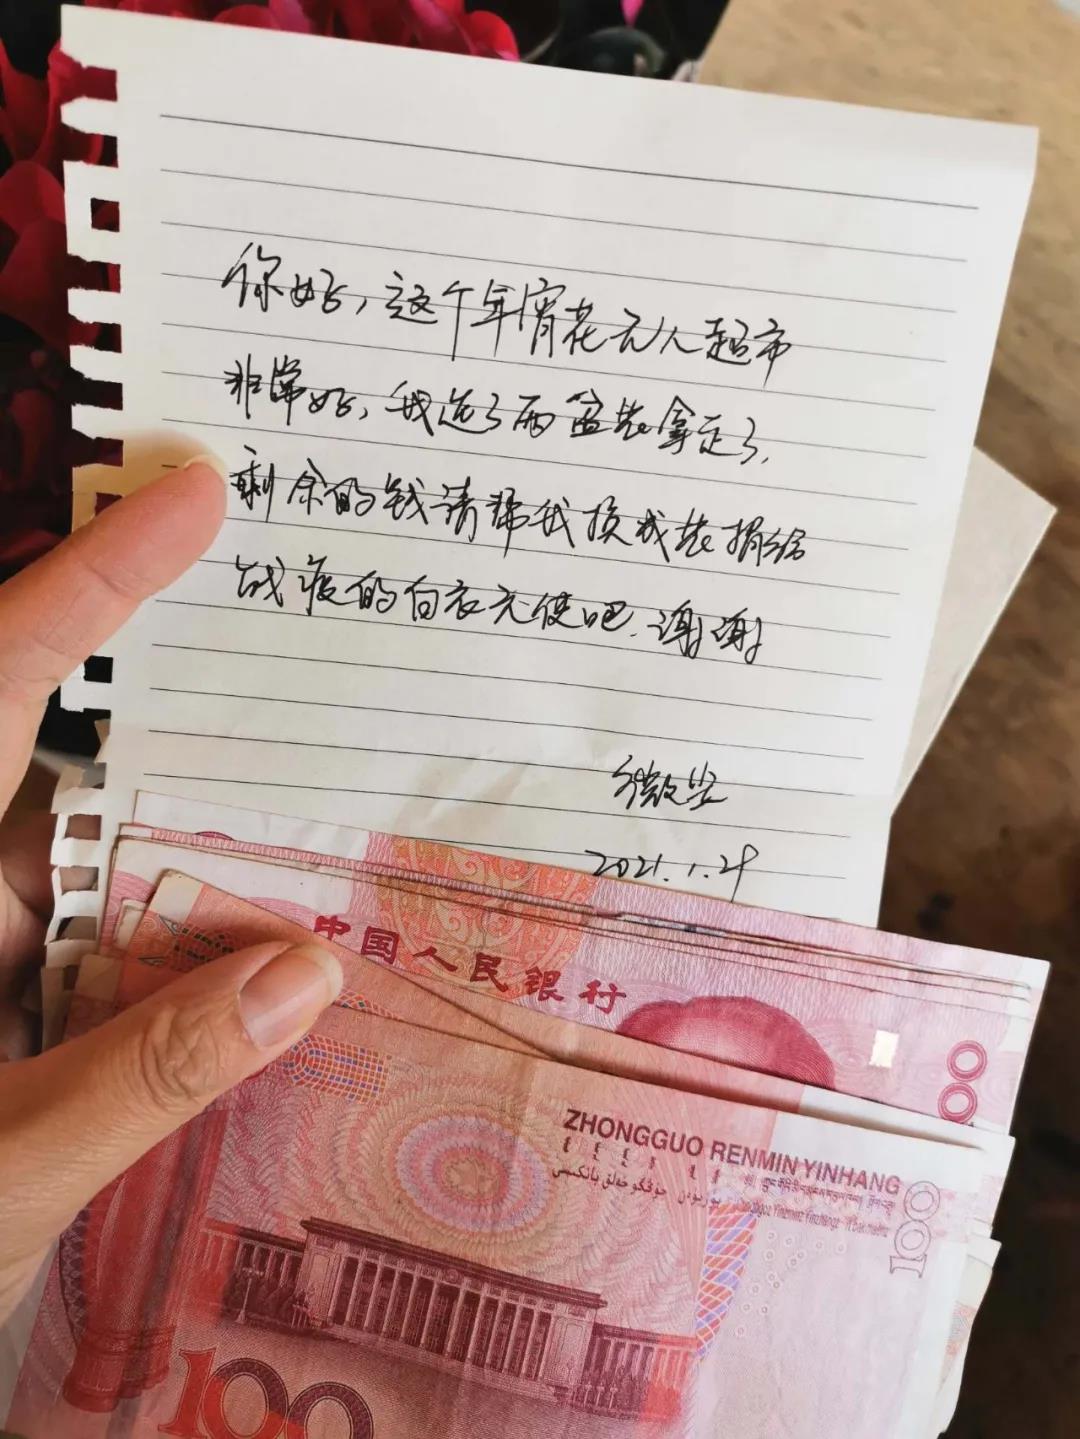 你好，这个年宵花无人超市
非常好，我选了两盆装拿走了，
剩余的钱请帮我换成装捐给
战疫的白衣天使吧，谢谢
2021.1.29
中国人民银行
100
ZHONGGUO RENMIN YINHANG
100
100